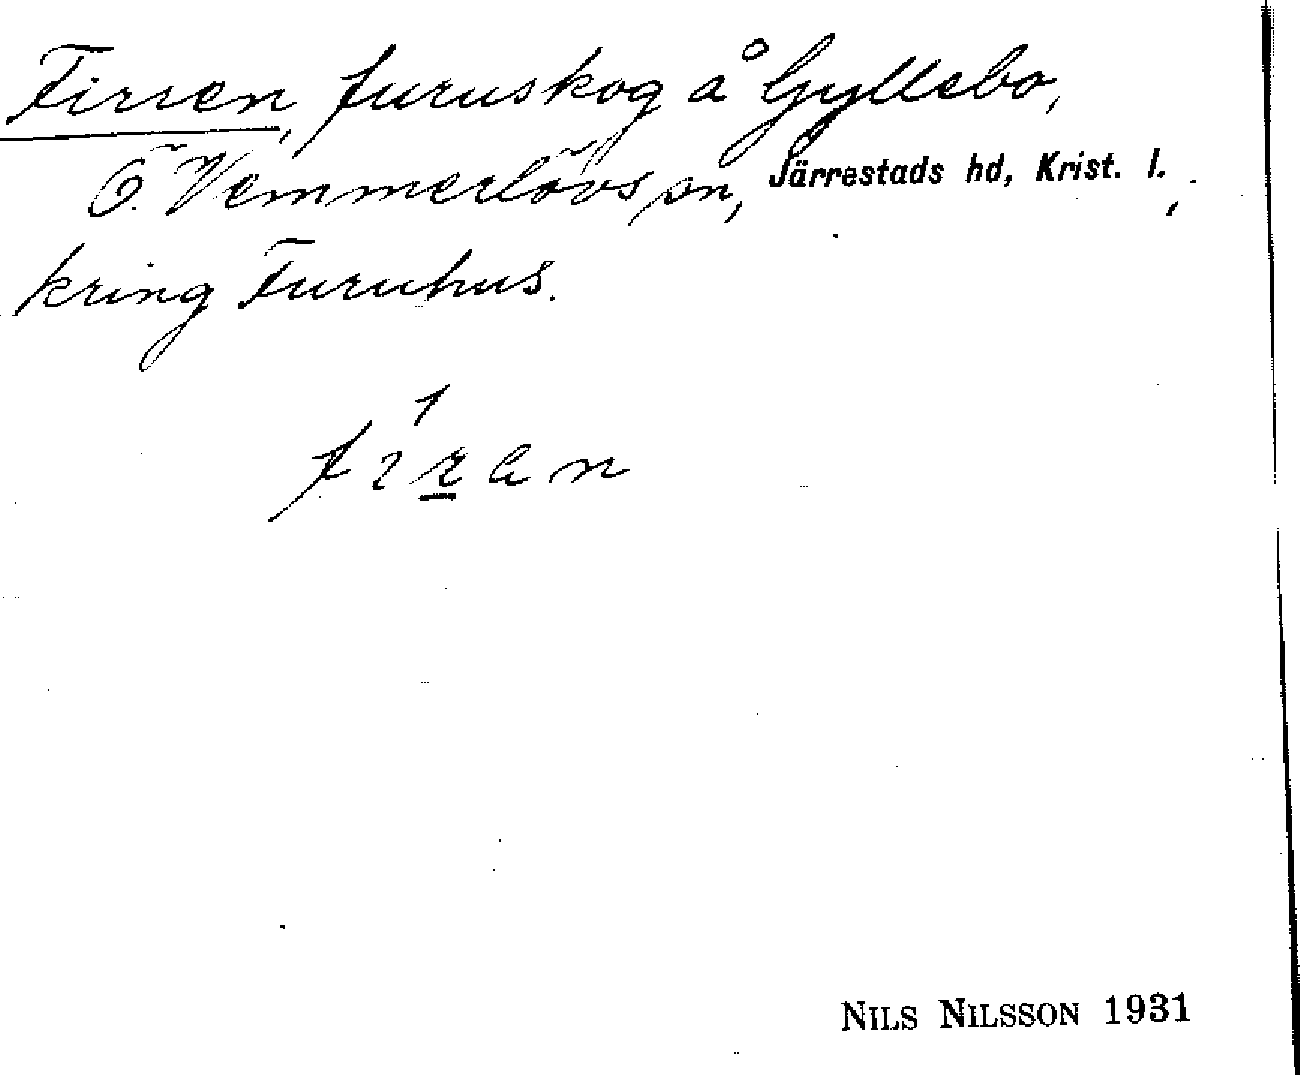 Firren, furuskog å Gyllebo,
Ö. Vemmerlövs sn, Järrestads hd, Krist. l.,
kring Furuhus.
NILS NILSSON 1931